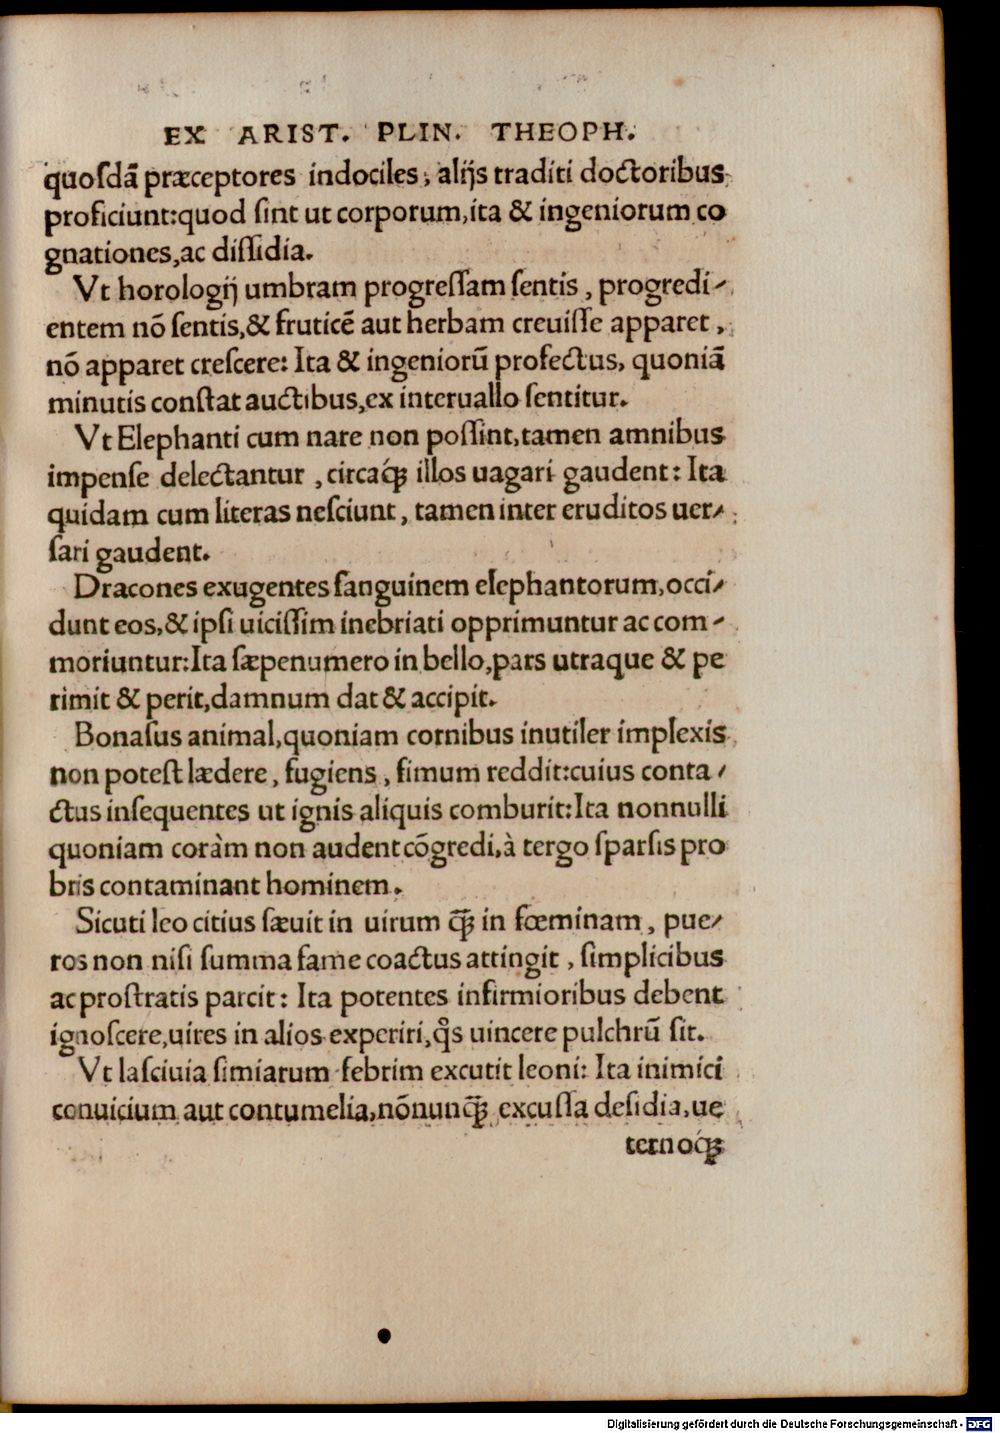 EX ARIST. PLIN. THEOPH.
quoſdã præceptores indociles, alijs traditi doctoribus
proficiunt:quod ſint ut corporum,ita & ingeniorum co
gnationes,ac diſſidia.
Vt horologij umbram progreſſam ſentis, progredi-
entem nõ ſentis,& fruticẽ aut herbam creuiſſe apparet,
nõ apparet creſcere: Ita & ingeniorũ profectus, quoniã
minutis conſtat auctibus,ex interuallo ſentitur.
Vt Elephanti cum nare non poſſint,tamen amnibus
impenſe delectantur, circaq́ꝫ illos uagari gaudent: Ita
quidam cum literas neſciunt, tamen inter eruditos uer-
ſari gaudent.
Dracones exugentes ſanguinem elephantorum,occi-
dunt eos,& ipſi uiciſſim inebriati opprimuntur ac com-
moriuntur:Ita ſæpenumero in bello,pars utraque & pe
rimit & perit,damnum dat & accipit.
Bonaſus animal,quoniam cornibus inutiler implexis
non poteſt lædere, fugiens, fimum reddit:cuius conta-
ctus inſequentes ut ignis aliquis comburit:Ita nonnulli
quoniam coràm non audent cõgredi,à tergo ſparſis pro
bris contaminant hominem.
Sicuti leo citius ſæuit in uirum q̃ꝫ in fœminam, pue-
ros non niſi ſumma fame coactus attingit, ſimplicibus
ac proſtratis parcit: Ita potentes infirmioribus debent
ignoſcere,uires in alios experiri,q̊s uincere pulchrũ ſit.
Vt laſciuia ſimiarum febrim excutit leoni: Ita inimici
conuicium aut contumelia,nõnunq̃ꝫ excuſſa deſidia,ue
ternoq́ꝫ
Digitalisierung gefördert durch die Deutsche Forschungsgemeinschaft - DFG